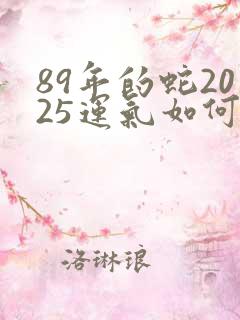 89年的蛇20
25運氣如何
洛琳琅